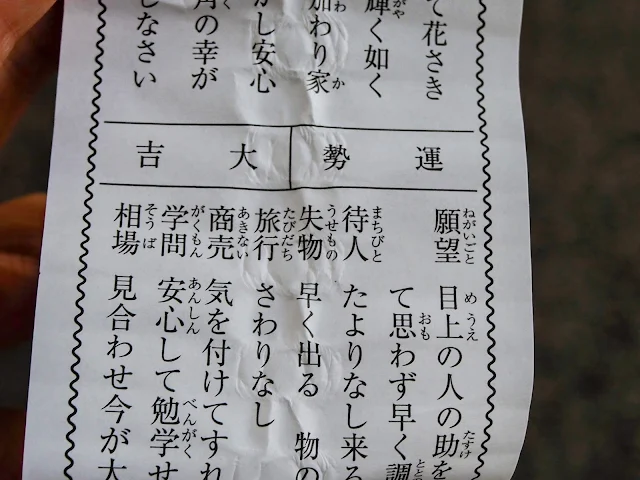 て花さき
輝く如く
加わり家
かし安心
角の幸が
しなさい
運勢 大吉
願望 目上の人の助を
て思わず早く調
待人 たよりなし来る
失物 早く出る 物の
旅行 さわりなし
商売 気を付けてすれ
学問 安心して勉学せ
相場 見合わせ今が大